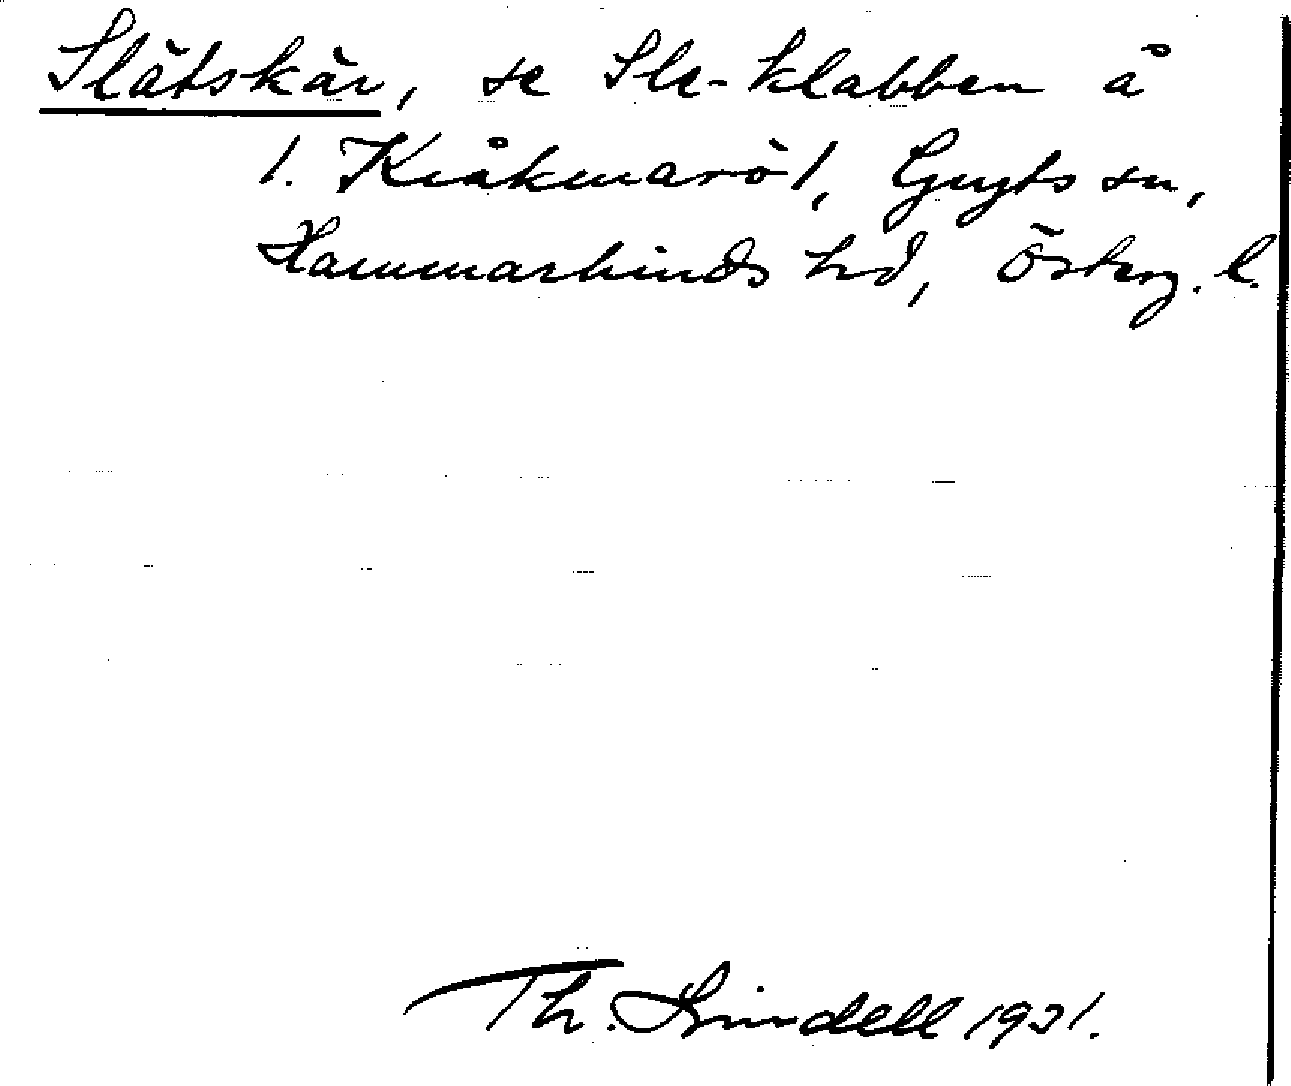 Slätskär, se Sle-klabben å
1. Kråkmarö 1, Gryts sn,
Hammarkinds hd, Österg. l.
Th. Lindell 1931.